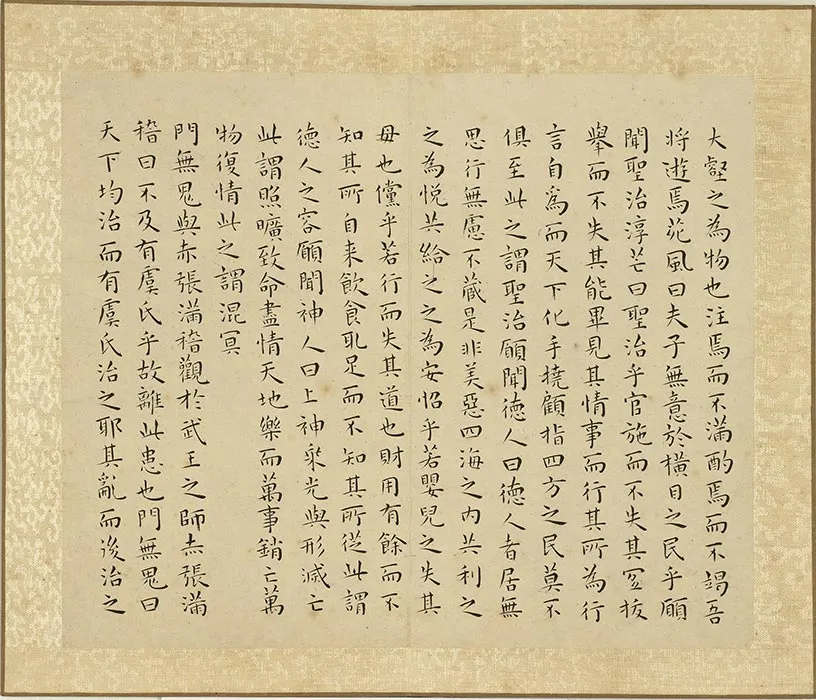 大壑之為物也注焉而不滿酌焉而不竭吾
將遊焉苑風曰夫子無意於橫目之民乎願
聞聖治淳芒曰聖治乎官施而不失其宜拔
舉而不失其能畢見其情事而行其所為行
言自為而天下化手撓顧指四方之民莫不
俱至此之謂聖治願聞德人曰德人者居無
思行無慮不藏是非美惡四海之內共利之
之為悅共給之之為安怊乎若嬰兒之失其
母也儻乎若行而失其道也財用有餘而不
知其所自来飲食取足而不知其所從此謂
德人之容願聞神人曰上神乘光與形滅亡
此謂照曠致命盡情天地樂而萬事銷亡萬
物復情此之謂混冥
門無鬼與赤張滿稽觀於武王之師赤張滿
稽曰不及有虞氏乎故離此患也門無鬼曰
天下均治而有虞氏治之耶其亂而後治之